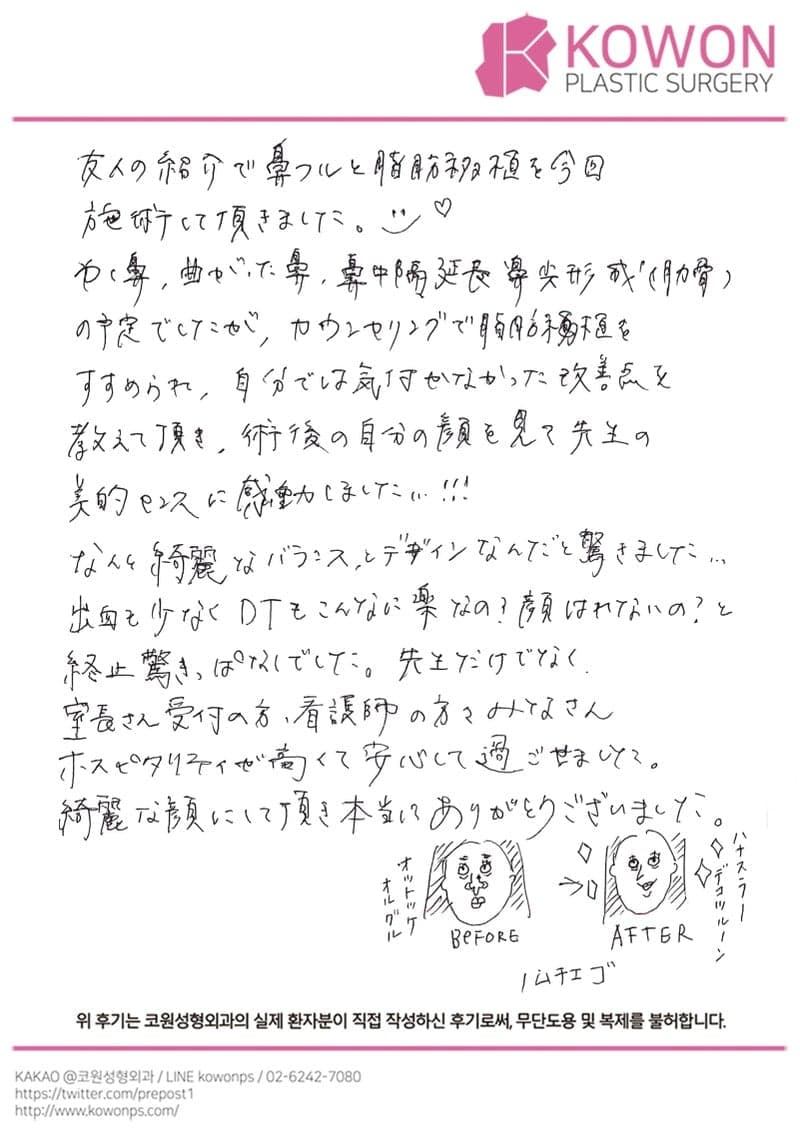 KOWON
PLASTIC SURGERY
友人の紹介で鼻フルと脂肪移植を今回
施術して頂きました。
わし鼻,曲がった鼻,鼻中隔延長鼻尖形成(肋骨)
の予定でしたが,カウンセリングで脂肪移植を
すすめられ,自分では気付かなかった改善点を
教えて頂き,術後の自分の顔を見て先生の
美的センスに感動しました…!!!
なんと綺麗なバランスとデザインなんだと驚きました…
出血も少なくDTもこんなに楽なの?顔はれないの?と
終止驚きっぱなしでした。先生だけでなく
室長さん受付の方、看護師の方々みなさん
ホスピタリティが高くて安心して過ごせました。
綺麗な顔にして頂き本当にありがとうございました。
オットッケ
オルグル
BEFORE
AFTER
ハナスラー
デコツルーン
ノムチエゴ
위 후기는 코원성형외과의 실제 환자분이 직접 작성하신 후기로써, 무단도용 및 복제를 불허합니다.
KAKAO @코원성형외과 / LINE kowonps / 02-6242-7080
https://twitter.com/prepost1
http://www.kowonps.com/